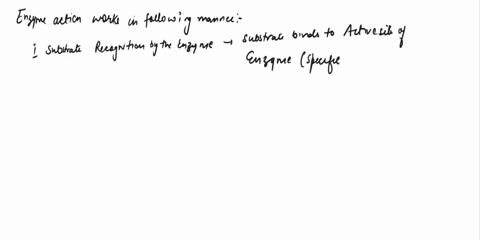 Enzyme action works in following manner:-
i Substrate Recognition by the Enzyme → Substrate binds to Active site of
Enzyme (Specific